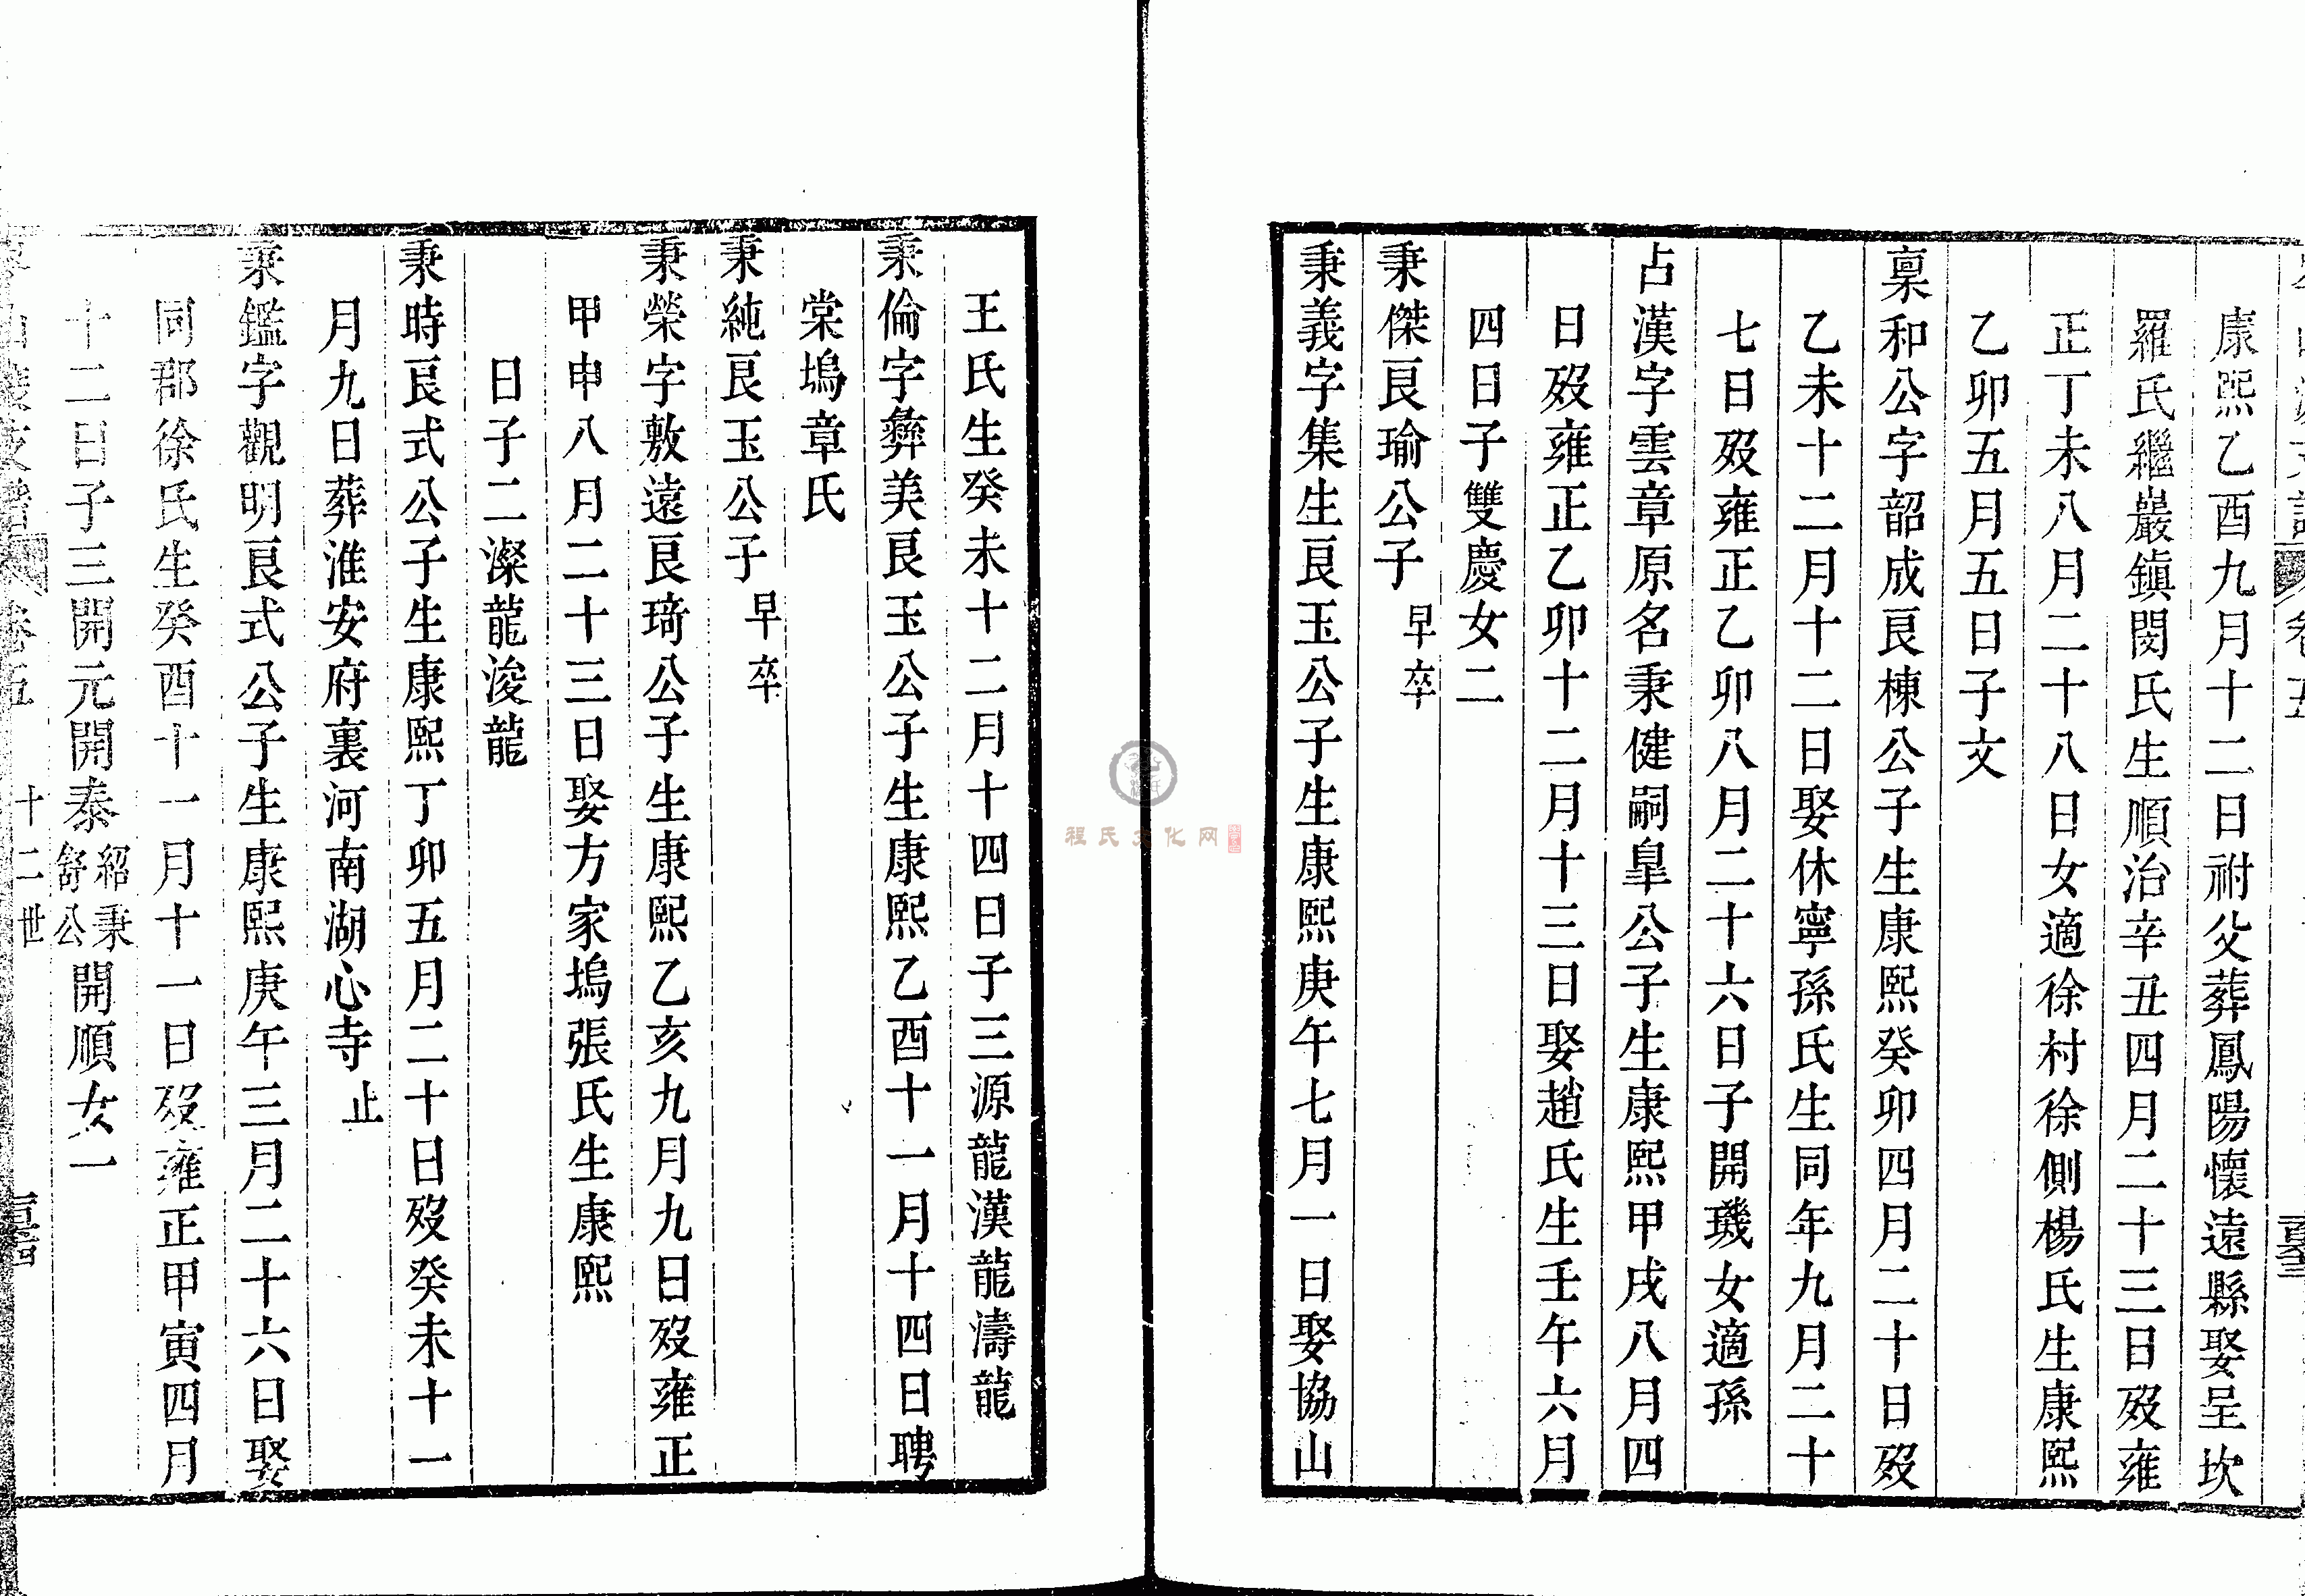 康熙乙酉九月十二日祔父葬鳳陽懷遠縣娶呈坎
羅氏繼巖鎮閔氏生順治辛丑四月二十三日歿雍
正丁未八月二十八日女適徐村徐側楊氏生康熙
乙卯五月五日子文
稟和公字韶成良棟公子生康熙癸卯四月二十日歿
乙未十二月十二日娶休寧孫氏生同年九月二十
七日歿雍正乙卯八月二十六日子開璣女適孫
占漢字雲章原名秉健嗣皐公子生康熙甲戌八月四
日歿雍正乙卯十二月十三日娶趙氏生壬午六月
四日子雙慶女二
秉傑良瑜公子早卒
秉義字集生良玉公子生康熙庚午七月一日娶協山
王氏生癸未十二月十四日子三源龍漢龍濤龍
秉倫字彝美良玉公子生康熙乙酉十一月十四日聘
棠塢章氏
秉純良玉公子早卒
秉榮字敷遠良琦公子生康熙乙亥九月九日歿雍正
甲申八月二十三日娶方家塢張氏生康熙
日子二濴龍浚龍
秉時良式公子生康熙丁卯五月二十日歿癸未十一
月九日葬淮安府裏河南湖心寺止
秉鑑字觀明良式公子生康熙庚午三月二十六日娶
同郡徐氏生癸酉十一月十一日歿雍正甲寅四月
十二日子三開元開泰紹秉舒公開順女一
卷五 十二世
程氏文化网